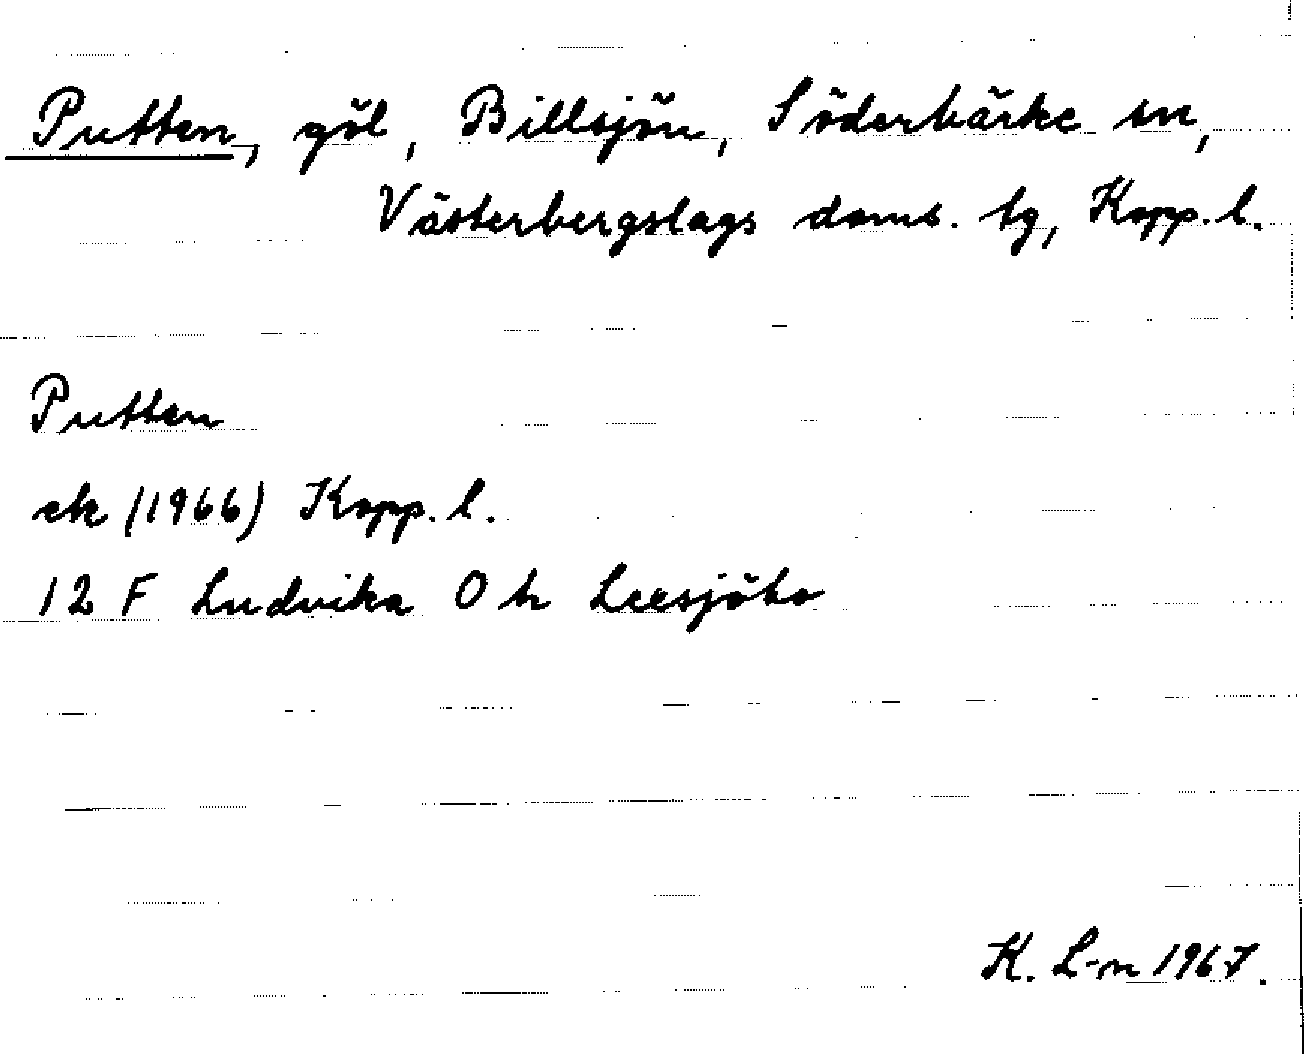 Putten, göl, Billsjön, Söderbärke sn,
Västerbergslags doms. tg, Kopp. l.
Putten
ek (1966) Kopp. l.
12 F Ludvika O h
K. L-n 1967.